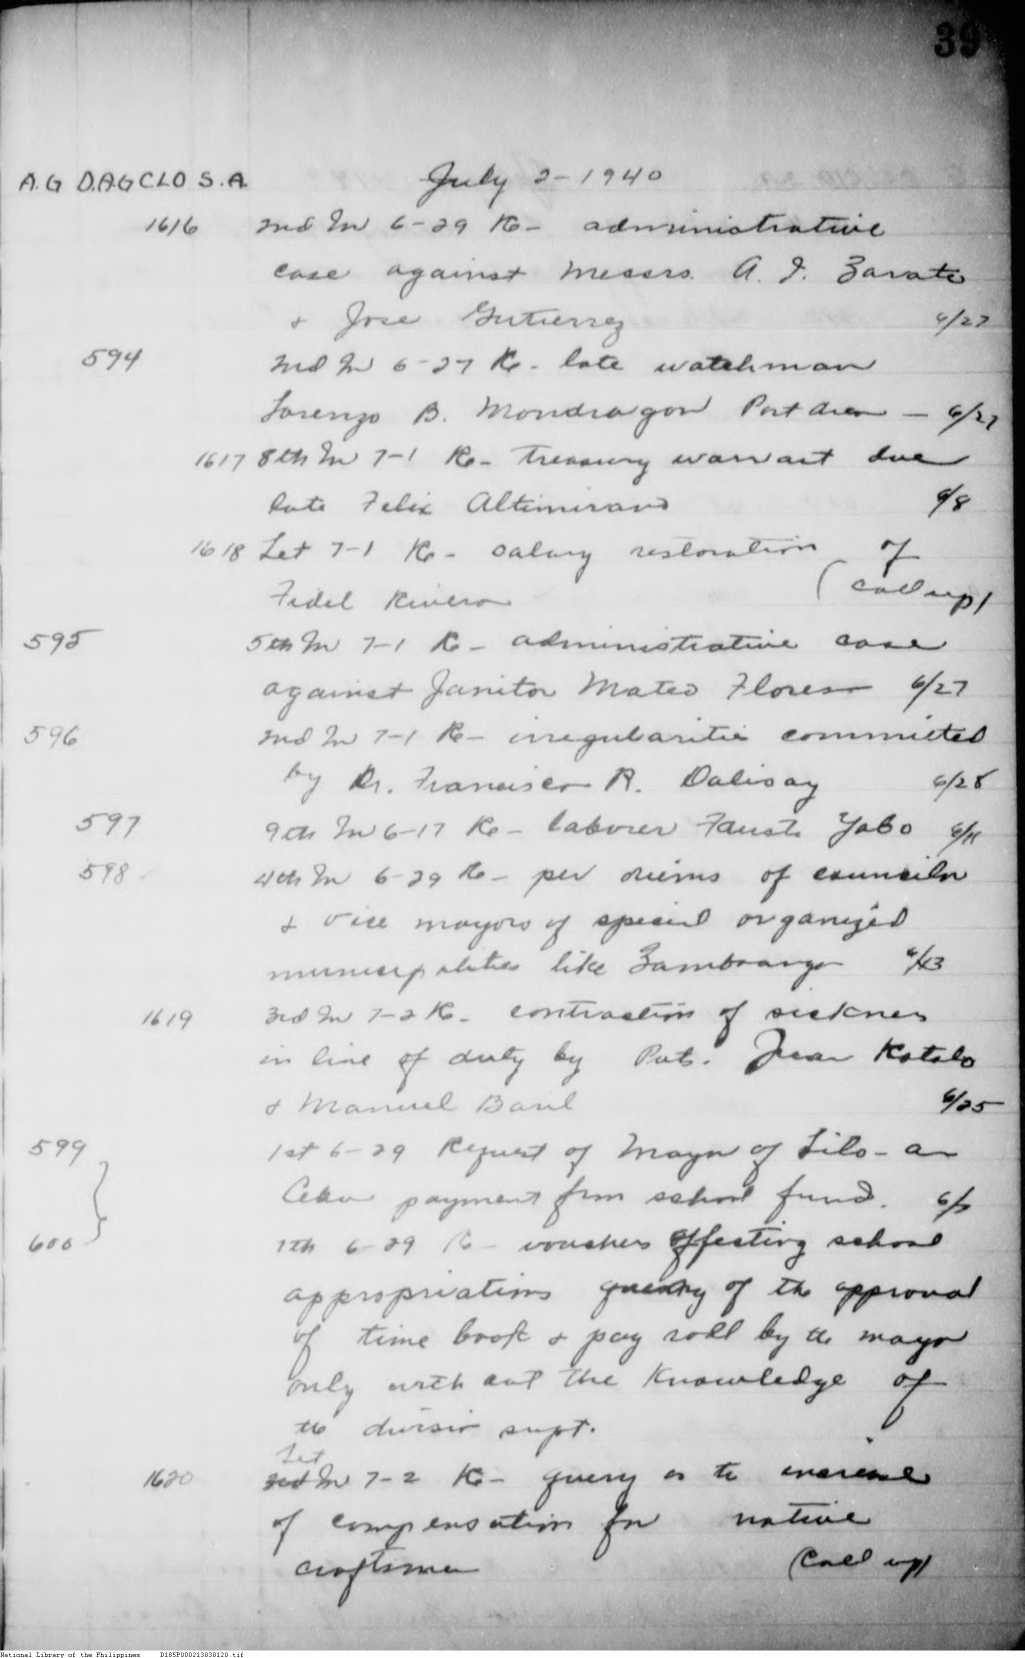 39
A.G D.A.G CLO S.A. July 2-1940
1616 2nd In 6-29 Re- administrative
case against Messrs. A. I. Zarate
& Jose Gutierrez 6/27
594 2nd In 6-27 Re- late watchman
Lorenzo B. Mondragon Port Area - 6/27
1617 8th In 7-1 Re- treasury warrant due
late Felix Altimirano 6/8
1618 Let 7-1 Re- salary restoration of
Fidel Rivera (Call up)
595 5th In 7-1 Re- administrative case
against Janitor Mateo Flores 6/27
596 2nd In 7-1 Re- irregularities committed
by Dr. Francisco R. Dalisay 6/28
597 9th In 6-17 Re- laborer Fausto Yabo
598 4th In 6-29 Re- per diems of councilor
& vice mayors of special organized
municipalities like Zamboanga
1619 3rd In 7-2 Re- contraction of sickness
in line of duty by Pvts. Juan Katalo
& Manuel Banl 6/25
599 1st 6-29 Request of Mayor of Lilo-an
Cebu payment from school fund.
600 7th 6-29 Re- vouchers effecting school
appropriations query of the approval
of time book & pay roll by the mayor
only with out the knowledge of
the division supt.
Let
1620 2nd In 7-2 Re- query as to increase
of compensation for native
craftsmen (Call up)
National Library of the Philippines D185P000213838120.tif